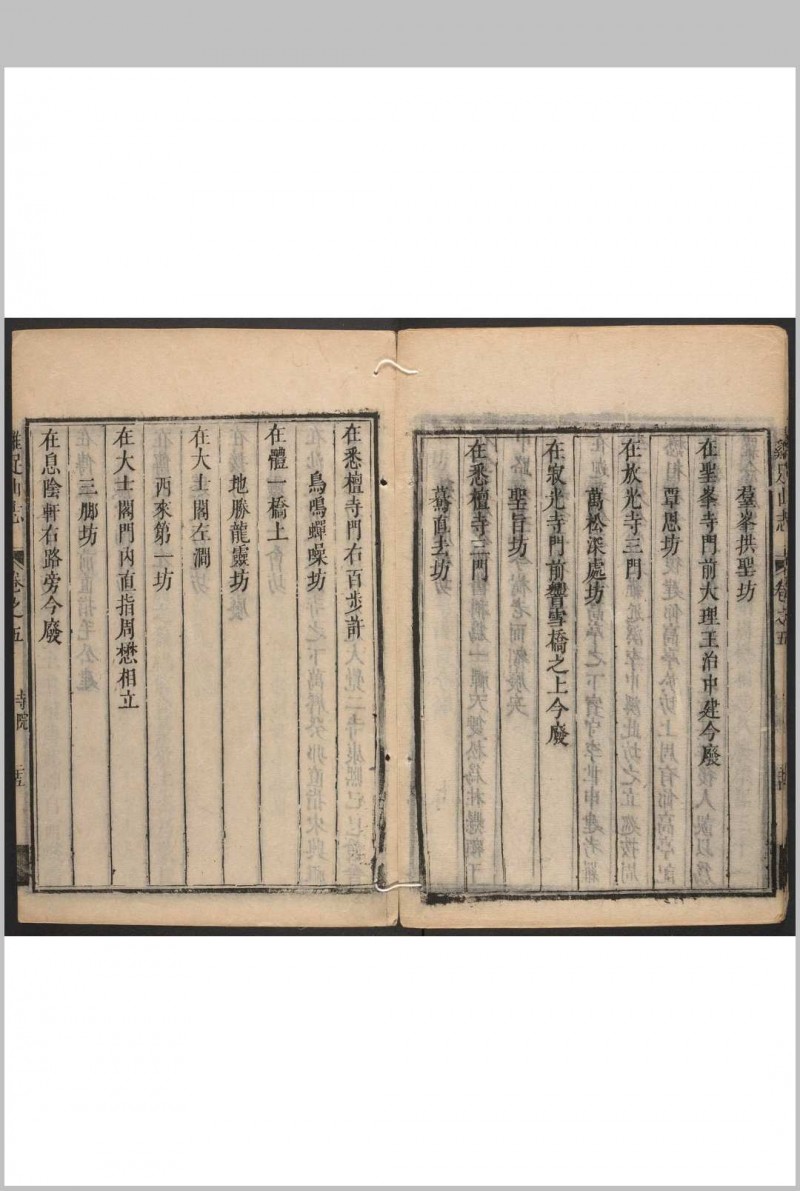 羣峯拱聖坊
在聖峯寺門前大理王治中建今廢
覃恩坊
在放光寺三門
萬松深處坊
在寂光寺門前響雪橋之上今廢
聖旨坊
在悉檀寺三門
驀直去坊
在悉檀寺門右百步許
鳥鳴蟬噪坊
在體一橋上
地勝龍靈坊
在大士閣左澗
西來第一坊
在大士閣門內直指周懋相立
三脚坊
在息陰軒右路旁今廢
雞足山志 卷之五 寺院